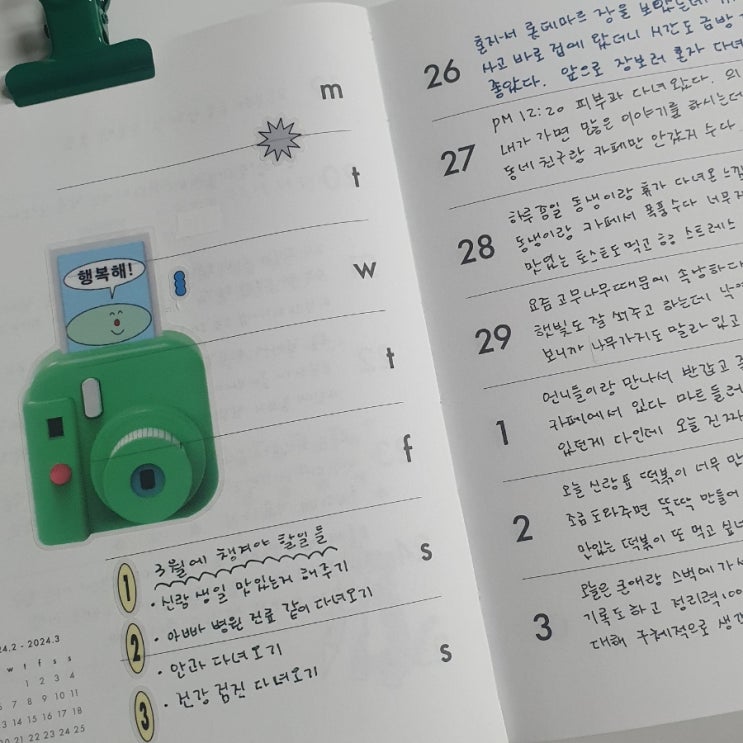 m
t
w
t
f
s
s
행복해!
1
2
3
3월에 챙겨야 할일들
· 신랑 생일 맛있는거 해주기
· 아빠 병원 진료 같이 다녀오기
· 안과 다녀오기
· 건강 검진 다녀오기
2024.3
w t f s s
1 2 3 4
7 8 9 10 11
13 14 15 16 17 18
20 21 22 23 24 25
26
혼자서 롯데마트 장을 보았는데
사고 바로 집에 왔더니 시간도 금방
좋았다. 앞으로 장보러 혼자 다녀
27
PM 12:20 피부과 다녀왔다.
내가 가면 많은 이야기를 하시는데
동네 친구랑 카페만 안갔지 수다
28
하루종일 동생이랑 휴가 다녀온
동생이랑 카페서 폭풍수다 너무
맛있는 토스트도 먹고 스트레스
29
요즘 고무나무때문에 속상하다
햇빛도 잘 쐬주고 하는데
보니까 나무가지도 말라 있고
1
언니들이랑 만나서 반갑고
카페에서 있다 마트들러
있던게 다인데 오늘 진짜
2
오늘 신랑표 떡볶이 너무
조금 도와주면 뚝딱 만들어
맛있는 떡볶이 또 먹고
3
오늘은 큰애랑 스벅에
기록도 하고 정리력
대해 구체적으로